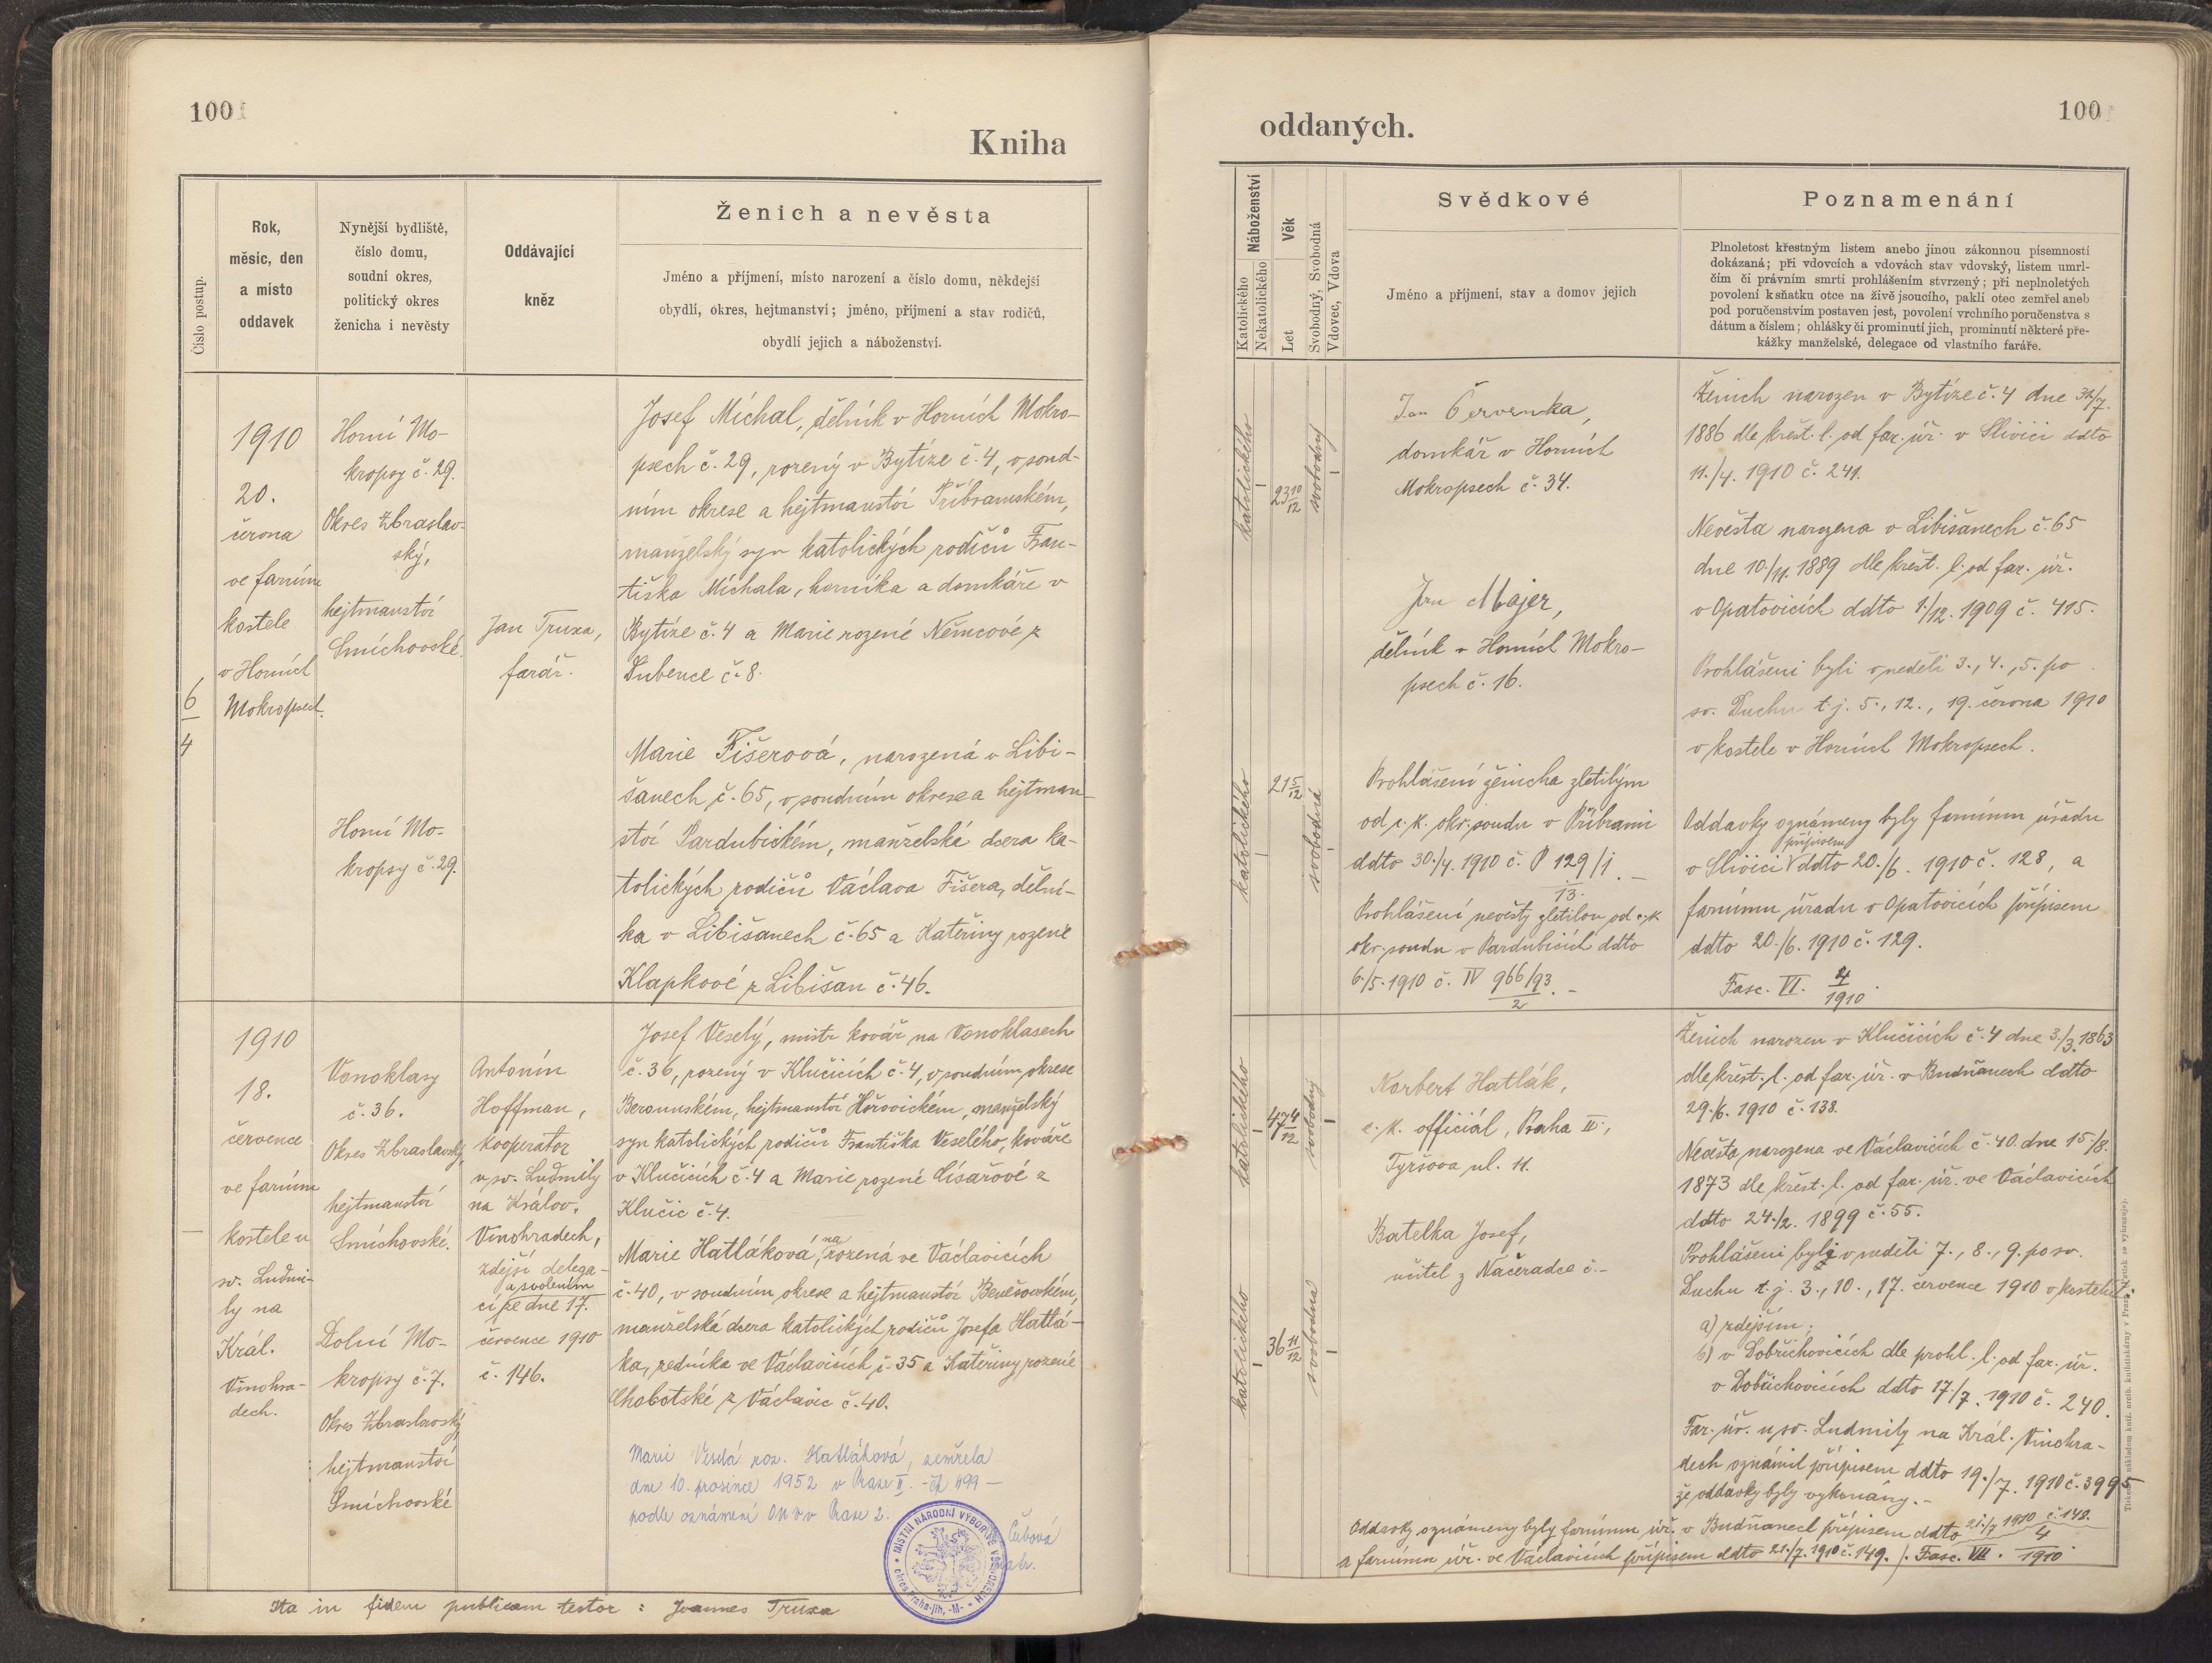 100
Kniha
Číslo postup.
Rok,
měsíc, den
a místo
oddavek
Nynější bydliště,
číslo domu,
soudní okres,
politický okres
ženicha i nevěsty
Oddávající
kněz
Ženich a nevěsta
Jméno a příjmení, místo narození a číslo domu, někdejší
obydlí, okres, hejtmanství; jméno, příjmení a stav rodičů,
obydlí jejich a náboženství.
6/4
1910
20.
června
ve farním
kostele
v Horních
Mokropsech.
Horní Mo-
kropsy č. 29.
Okres Zbraslav-
ský,
hejtmanství
Smíchovské.
Horní Mo-
kropsy č. 29.
Jan Truxa,
farář.
Josef Míchal, dělník v Horních Mokro-
psech č. 29, rozený v Bytíze č. 4, v soud-
ním okrese a hejtmanství Příbramském,
manželský syn katolických rodičů Fran-
tiška Míchala, horníka a domkáře v
Bytíze č. 4 a Marie rozené Němcové z
Dubence č. 8.
Marie Fišerová, narozená v Libi-
šanech č. 65, v soudním okrese a hejtman-
ství Pardubickém, manželská dcera ka-
tolických rodičů Václava Fišera, dělní-
ka v Libišanech č. 65 a Kateřiny rozené
Klapkové z Libišan č. 46.
1910
18.
července
ve farním
kostele u
sv. Ludmi-
ly na
Král.
Vinohra-
dech.
Vonoklasy
č. 36.
Okres Zbraslavský,
hejtmanství
Smíchovské.
Dolní Mo-
kropsy č. 7.
Okres Zbraslavský,
hejtmanství
Smíchovské
Antonín
Hoffman,
kooperátor
u sv. Ludmily
na Králov.
Vinohradech,
zdejší delega-
a svolením
cí ze dne 17.
července 1910
č. 146.
Josef Veselý, mistr kovář na Vonoklasech
č. 36, rozený v Klučicích č. 4, v soudním okrese
Berounském, hejtmanství Hořovickém, manželský
syn katolických rodičů Františka Veselého, kováře
v Klučicích č. 4 a Marie rozené Císařové z
Klučic č. 4.
Marie Hatláková, narozená ve Václavicích
č. 40, v soudním okrese a hejtmanství Benešovském,
manželská dcera katolických rodičů Josefa Hatlá-
ka, zedníka ve Václavicích č. 35 a Kateřiny rozené
Chobotské z Václavic č. 40.
Marie Veselá roz. Hatláková, zemřela
dne 10. prosince 1952 v Praze II. - čp 499 -
podle oznámení ONV v Praze 2.
Čubová
matr.
MÍSTNÍ NÁRODNÍ VÝBOR VE VŠENORECH
okres Praha-jih, -M-
Ita in fidem publicam testor: Joannes Truxa
100
oddaných.
Náboženství
Katolického
Nekatolického
Věk
Let
Svobodný, Svobodná
Vdovec, Vdova
Svědkové
Jméno a příjmení, stav a domov jejich
Poznamenání
Plnoletost křestným listem anebo jinou zákonnou písemností
dokázaná; při vdovcích a vdovách stav vdovský, listem úmrt-
čím či právním smrti prohlášením stvrzený; při neplnoletých
povolení k sňatku otce na živě jsoucího, pakli otec zemřel aneb
pod poručenstvím postaven jest, povolení vrchního poručenstva s
dátum a číslem; ohlášky či prominutí jich, prominutí některé pře-
kážky manželské, delegace od vlastního faráře.
katolického
23 10/12
svobodný
Jan Červenka,
domkář v Horních
Mokropsech č. 34.
Jan Majer,
dělník v Horních Mokro-
psech č. 16.
katolického
21 5/12
svobodná
Prohlášení ženicha zletilým
od c. k. okr. soudu v Příbrami
ddto 30./4. 1910 č. P 129/1/13. -
Prohlášení nevěsty zletilou od c. k.
okr. soudu v Pardubicích ddto
6./5. 1910 č. IV 966/93/2. -
Ženich narozen v Bytíze č. 4 dne
1886 dle křest. l. od far. úř. v Slivici ddto
11./4. 1910 č. 241.
Nevěsta narozena v Libišanech č. 65
dne 10./11. 1889 dle křest. l. od far. úř.
v Opatovicích ddto 1./12. 1909 č. 415.
Prohlášeni byli v neděli 3., 4., 5. po
sv. Duchu t. j. 5., 12., 19. června 1910
v kostele v Horních Mokropsech.
Oddavky oznámeny byly farnímu úřadu
v Slivici přípisem ddto 20./6. 1910 č. 128, a
farnímu úřadu v Opatovicích přípisem
ddto 20./6. 1910 č. 129.
Fasc. VI. 4/1910.
katolického
47 4/12
svobodný
Norbert Hatlák,
c. k. officiál, Praha II.,
Tyršova ul. 11.
katolického
36 11/12
svobodná
Batelka Josef,
učitel z Načeradce č. -
Ženich narozen v Klučicích č. 4 dne 3./3. 1863
dle křest. l. od far. úř. v Budňanech ddto
29./6. 1910 č. 138.
Nevěsta narozena ve Václavicích č. 40. dne 15./8.
1873 dle křest. l. od far. úř. ve Václavicích
ddto 24./2. 1899 č. 55.
Prohlášeni byli v neděli 7., 8., 9. po sv.
Duchu t. j. 3., 10., 17. července 1910 v kostele:
a) zdejším;
b) v Dobřichovicích dle prohl. l. od far. úř.
v Dobřichovicích ddto 17./7. 1910 č. 240.
Far. úř. u sv. Ludmily na Král. Vinohra-
dech oznámil přípisem ddto 19./7. 1910 č. 3995
že oddavky byly vykonány. -
Oddavky oznámeny byly farnímu úř. v Budňanech přípisem ddto 21./7 1910 č. 148.
a farnímu úř. ve Václavicích přípisem ddto 21./7. 1910 č. 149. /. Fasc. VII. 4/1910.